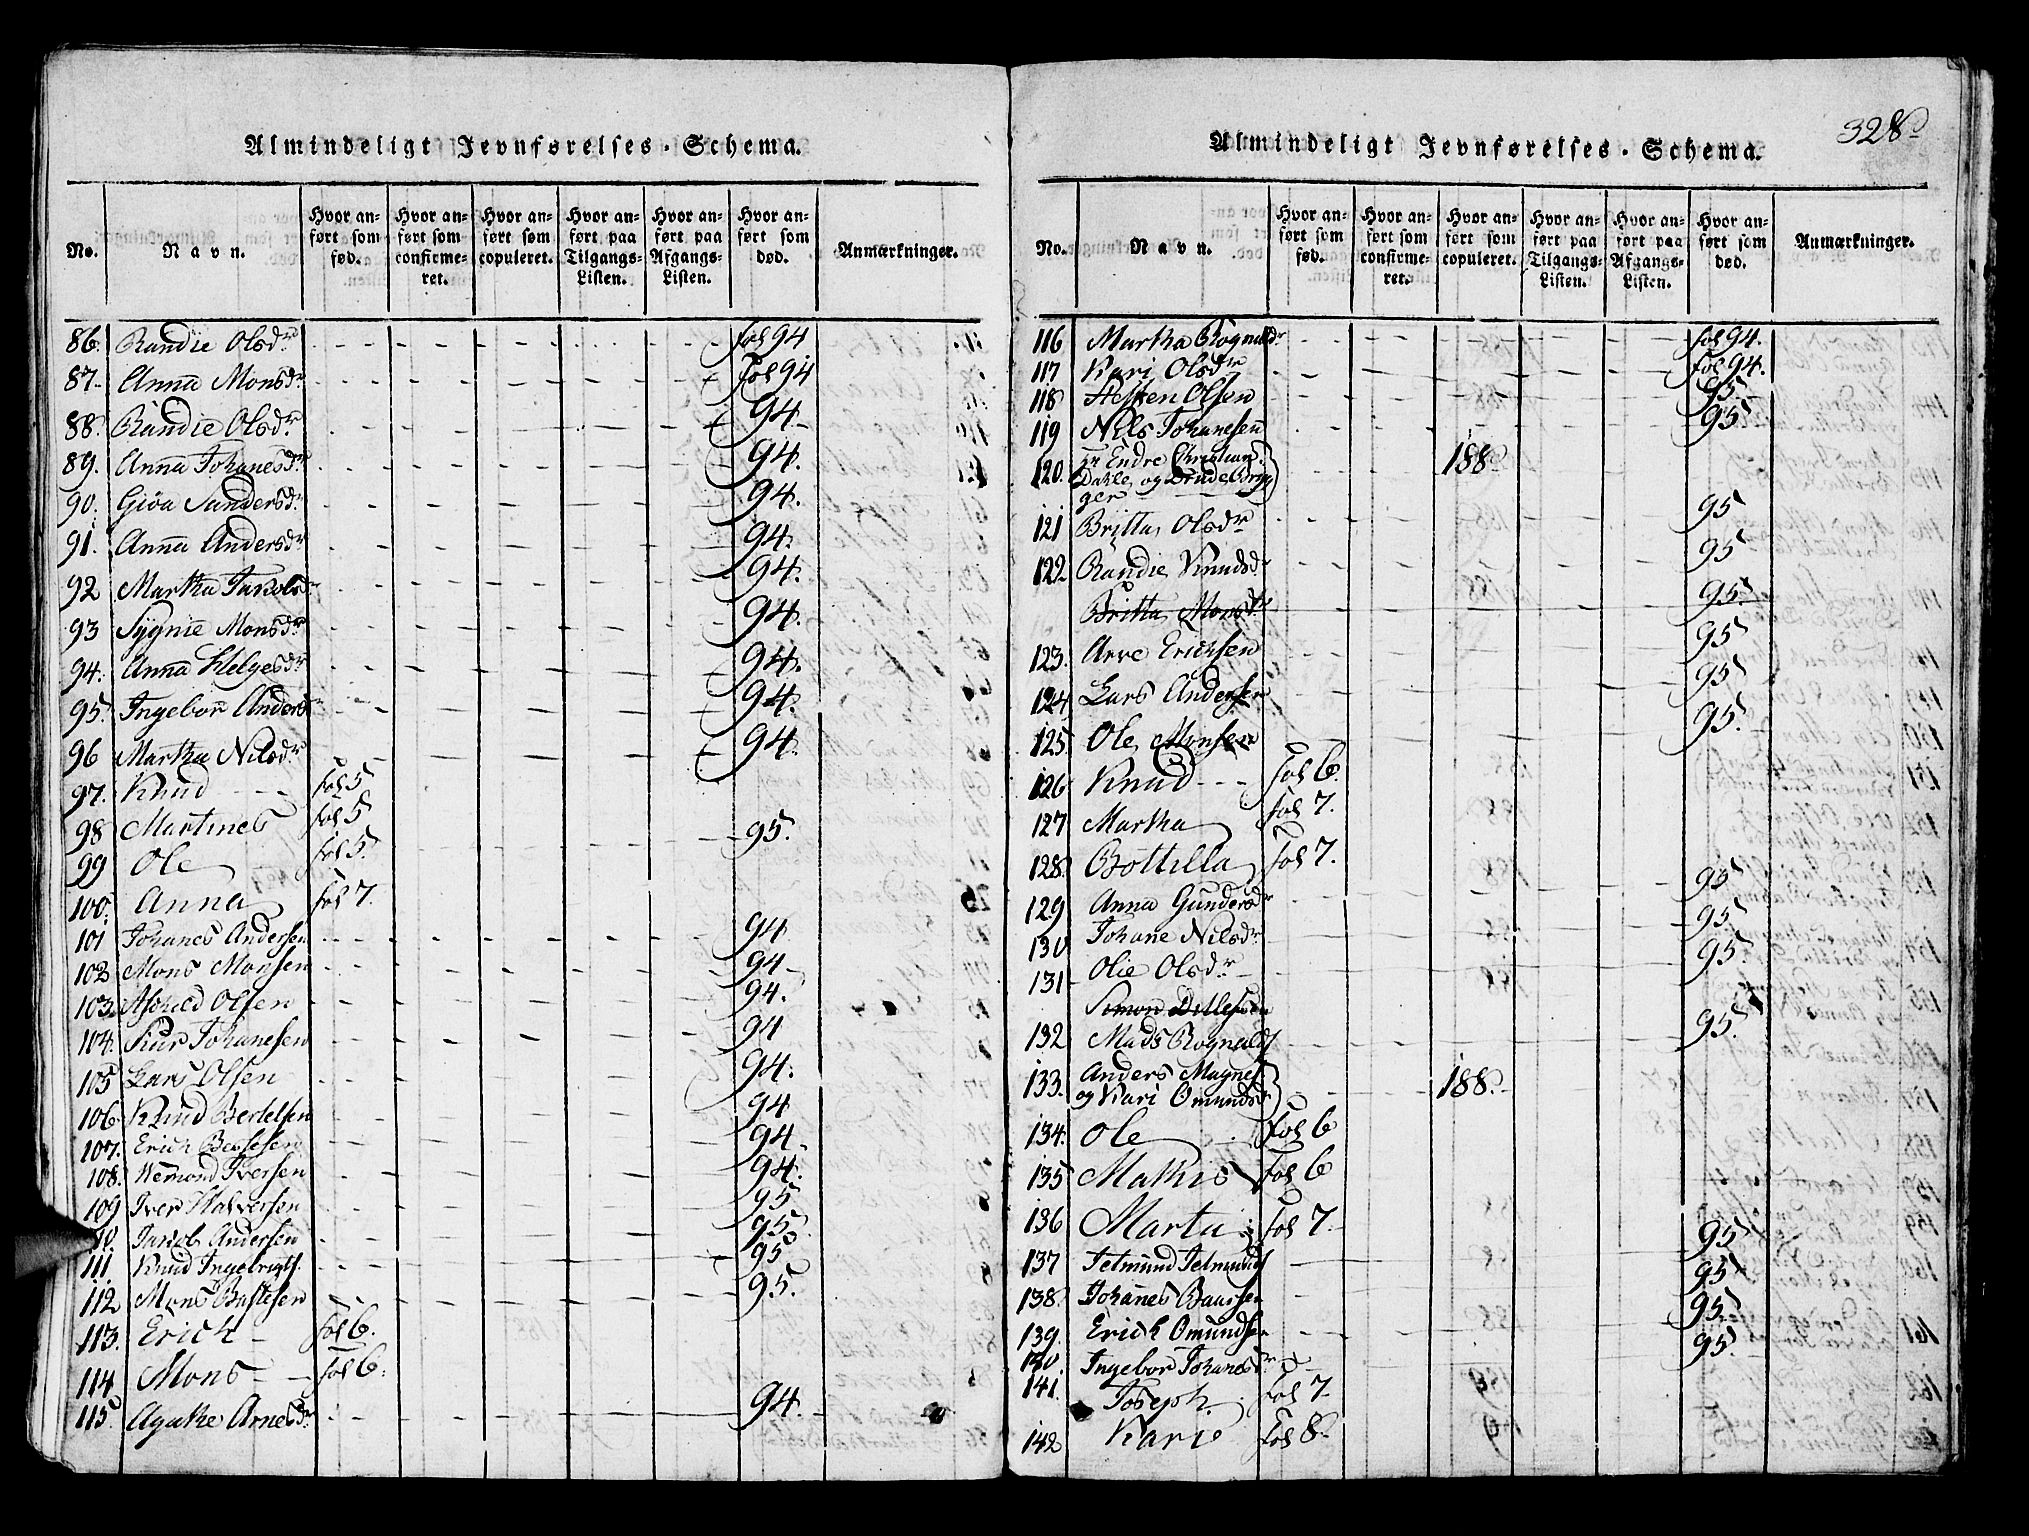 Almindeligt Jevnførelses-Schema.
No. Navn. Hvor anført som fød. Hvor anført som confirmeret. Hvor anført som copuleret. Hvor anført paa Tilgangs-Listen. Hvor anført paa Afgangs-Listen. Hvor anført som død. Anmærkninger.
86. Randie Olsdr fol 94
87. Anna Monsdr fol 94
88. Randie Olsdr 94
89. Anna Johanesdr 94.
90. Giøa Sandersdr 94.
91. Anna Andersdr 94.
92 Martha Jacobsdr 94.
93 Sygnie Monsdr 94.
94. Anna Helgesdr 94.
95. Ingebor Andersdr 94.
96 Martha Nilsdr 94.
97. Knud fol 5
98 Martines fol 5 95.
99 Ole fol 5.
100. Anna fol 7.
101 Johanes Andersen 94
102 Mons Monsen 94
103. Olsen 94.
104. Siur Johanesen 94
105 Lars Olsen 94.
106. Knud Bertelsen 94
107. Erich Bessesen 94
108. Wemond Iversen 94.
109 Iver Halversen 95
110. Jacob Andersen 95.
111. Knud Ingebrigts. 95
112 Mons Bastesen 95.
113. Erich fol 6.
114 Mons fol 6.
115 Agathe Arnesdr 94.
328
Almindeligt Jevnførelses-Schema.
No. Navn. Hvor anført som fød. Hvor anført som confirmeret. Hvor anført som copuleret. Hvor anført paa Tilgangs-Listen. Hvor anført paa Afgangs-Listen. Hvor anført som død. Anmærkninger.
116 Martha Rognaldsdr fol 94.
117 Kari Olsdr fol 94.
118 Steffen Olsen 95
119 Nils Johanesen 95
120. Hr Endre Christian
Dahle og Drude Bryg
ger 188
121 Britta Olsdr 95
122 Randie Knudsdr 95
Britta Monsdr 95.
123. Arve Ericksen 95
124 Lars Andersen 95
125 Ole Monsen 95.
126 Knud fol 6.
127 Martha fol 7.
128. Bottilla fol 7.
129 Anna Gundersdr 95
130 Johane Nilsdr 95
131 Olie Olsdr 95.
Simon Dillesen
132 Mads Rognalds 95
133. Anders Magnes
og Kari Omundsdr 188.
134. Ole fol 6
135 Mathis fol 6
136 Marta fol 7.
137 Jelmund Jelmunds 95
138. Johanes Baarsen 95
139. Erich Omundsen 95.
140. Ingebor Johanesdr 95.
141. Joseph fol 7
142 Karie fol 8.